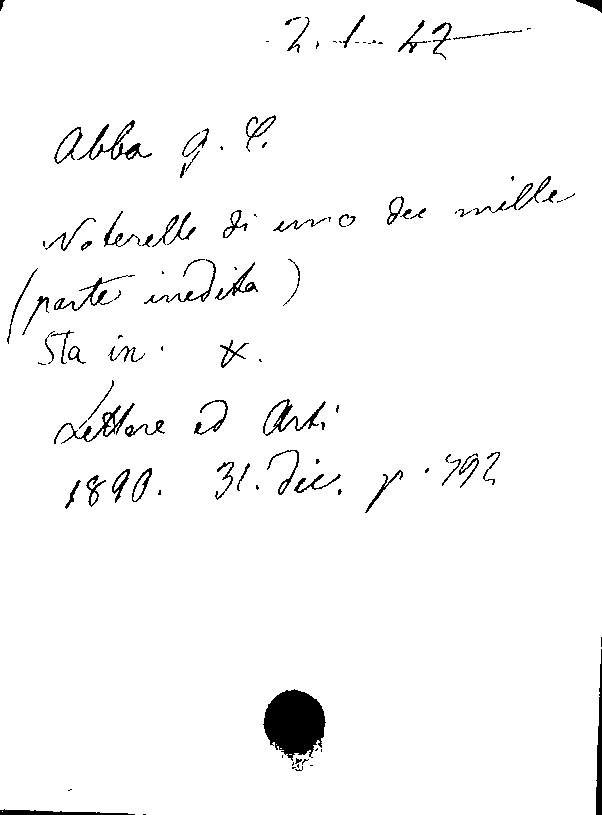 2. 1. 42
Abba G. C.
Noterelle di uno dei mille
(parte inedita)
Sta in: X.
Lettere ed Arti
1890. 31. dic. p. 792